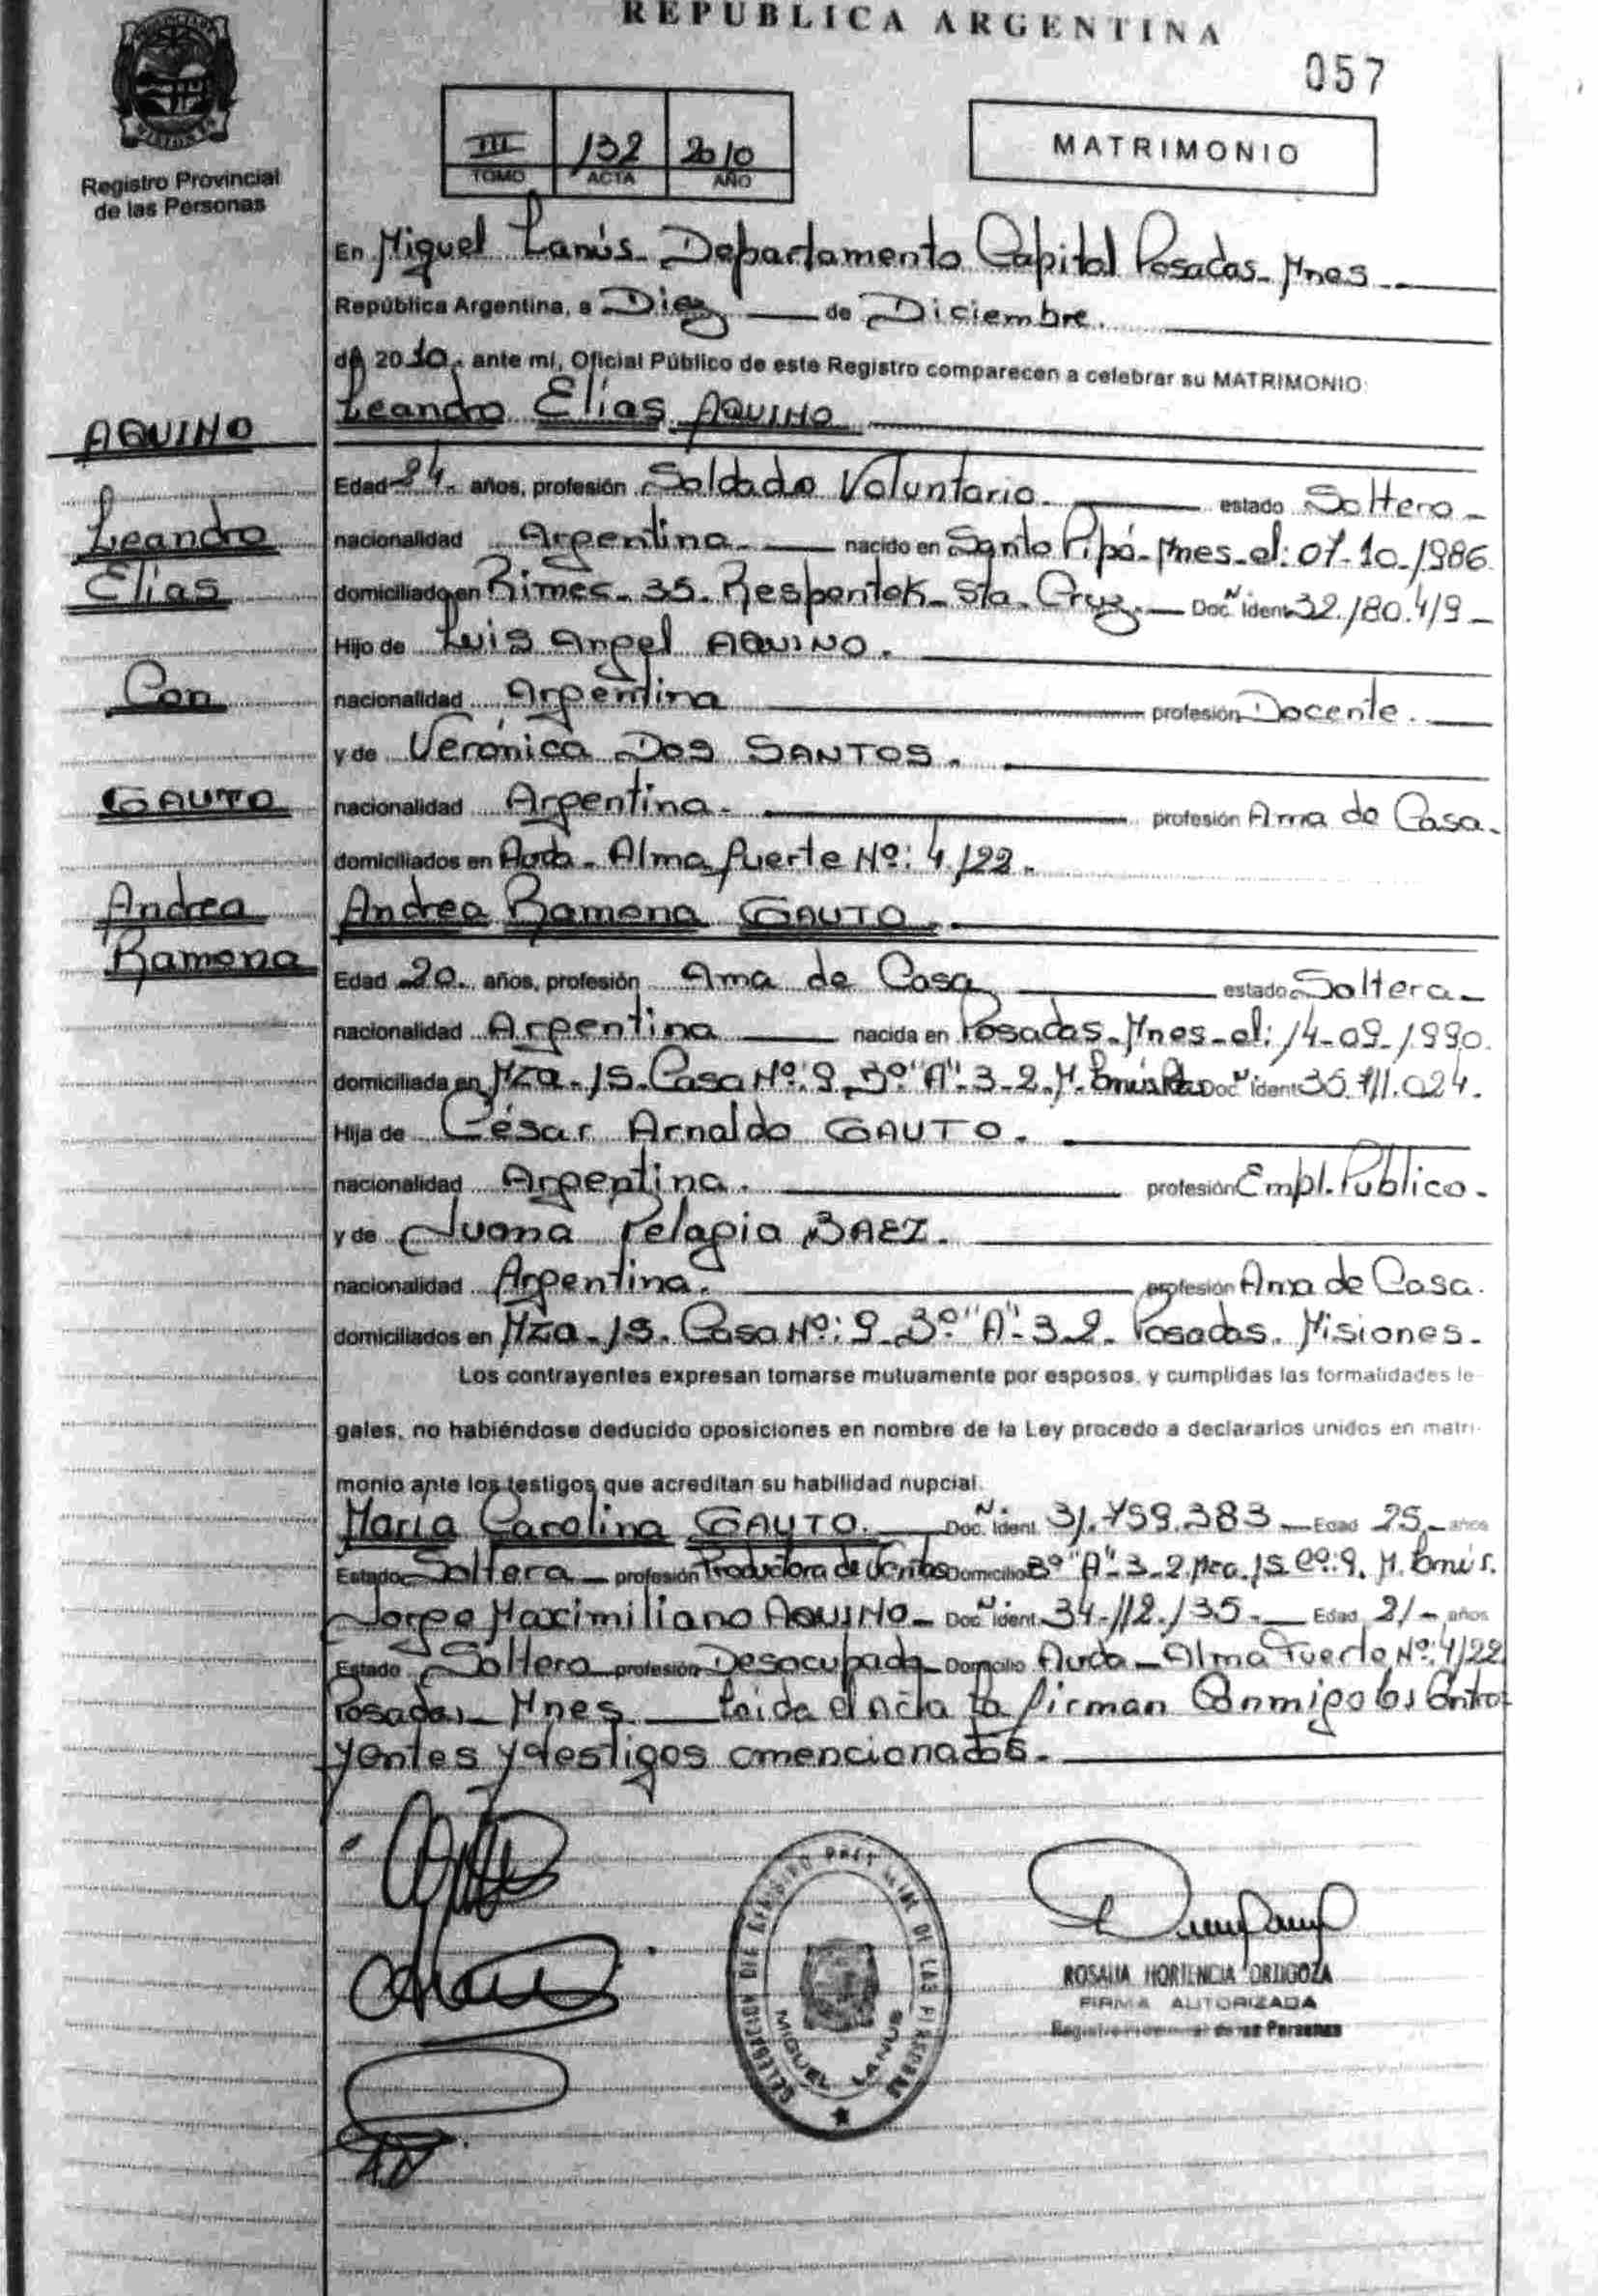 REPUBLICA ARGENTINA
057
Registro Provincial
de las Personas
III 132 2010
TOMO ACTA AÑO
MATRIMONIO
En Miguel Lanús - Departamento Capital Posadas - Mnes
República Argentina, a Diez de Diciembre
de 2010, ante mí, Oficial Público de este Registro comparecen a celebrar su MATRIMONIO:
Leandro Elías AQUINO
AQUINO
Leandro
Elías
Con
GAUTO
Andrea
Ramona
Edad 24 años, profesión Soldado Voluntario. estado Soltero -
nacionalidad Argentina - nacido en Santo Pipó - Mnes - el: 07-10-1986
domiciliado en Rimec - 35 - Sta. Cruz. - Doc. Ident 32.180.419 -
Hijo de Luis Angel AQUINO.
nacionalidad Argentina profesión Docente.
y de Verónica Dos SANTOS.
nacionalidad Argentina - profesión Ama de Casa.
domiciliados en Avda - Alma fuerte Nº: 4122.
Andrea Ramona GAUTO.
Edad 20. años, profesión Ama de Casa estado Soltera -
nacionalidad Argentina nacida en Posadas - Mnes - el: 14-09-1990.
domiciliada en Mza - 15. Casa Nº: 9 - Bº "A" - 3-2. M. Doc. Ident 35.711.024.
Hija de César Arnaldo GAUTO.
nacionalidad Argentina. profesión Empl. Público.
y de Juana Pelagia BAEZ.
nacionalidad Argentina. profesión Ama de Casa.
domiciliados en Mza - 15. Casa Nº: 9 - Bº "A" - 3 2. Posadas. Misiones -
Los contrayentes expresan tomarse mutuamente por esposos, y cumplidas las formalidades le-
gales, no habiéndose deducido oposiciones en nombre de la Ley procedo a declararlos unidos en matri-
monio ante los testigos que acreditan su habilidad nupcial.
María Carolina GAUTO. Doc. Ident. 31.759.383 - Edad 25 - años
Estado Soltera - profesión Productora de Ventas Domicilio Bº "A" - 3-2. Mza. 15 Cº: 9. M.
Jorge Maximiliano AQUINO - Doc. Ident. 34.112.135 - Edad 21 - años
Estado Soltero profesión Desocupado Domicilio Avda - Alma Fuerte Nº: 4122
Posadas - Mnes Leida el Acta la firman Conmigo los Contra
yentes y testigos amencionados.
DELEGACION DEL REGISTRO DE LAS PERSONAS
MIGUEL LANUS
ROSALIA HORTENCIA ORTIGOZA
FIRMA AUTORIZADA
Registro Provincial de las Personas